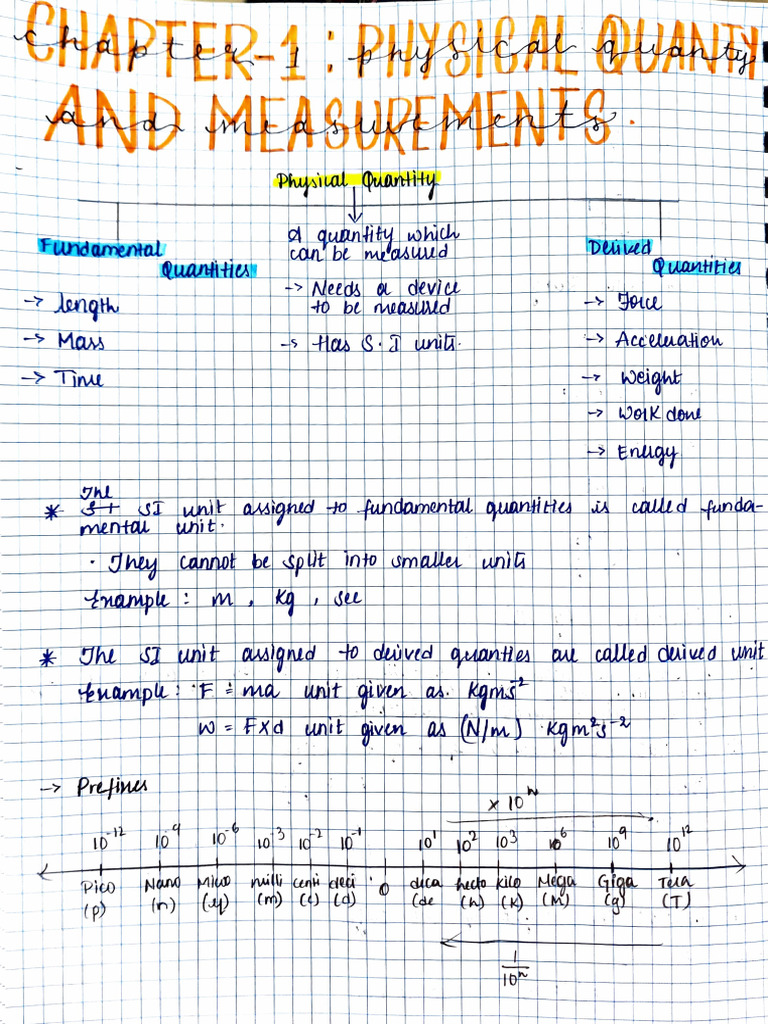 CHAPTER-1: PHYSICAL QUANTY
AND MEASUREMENTS.
Physical Quantity
Fundamental
Quantities
→ Length
→ Mass
→ Time
A quantity which
can be measured
→ Needs a device
to be measured
→ Has S.I units.
Derived
Quantities
→ Force
→ Acceleration
→ Weight
→ Work done
→ Energy
The
* SI unit assigned to fundamental quantities is called funda-
mental unit.
• They cannot be split into smaller units
Example : m , kg , sec
* The SI unit assigned to derived quanties are called derived unit
Example : F = ma unit given as. kgms⁻²
W = F×d unit given as (N/m) kgm²s⁻²
→ Prefixes
× 10ⁿ
10⁻¹² 10⁻⁹ 10⁻⁶ 10⁻³ 10⁻² 10⁻¹ 10¹ 10² 10³ 10⁶ 10⁹ 10¹²
Pico Nano Micro milli centi deci 0 deca hecto Kilo Mega Giga Tera
(p) (n) (m) (c) (d) (de (h) (K) (M) (g) (T)
1/10ⁿ